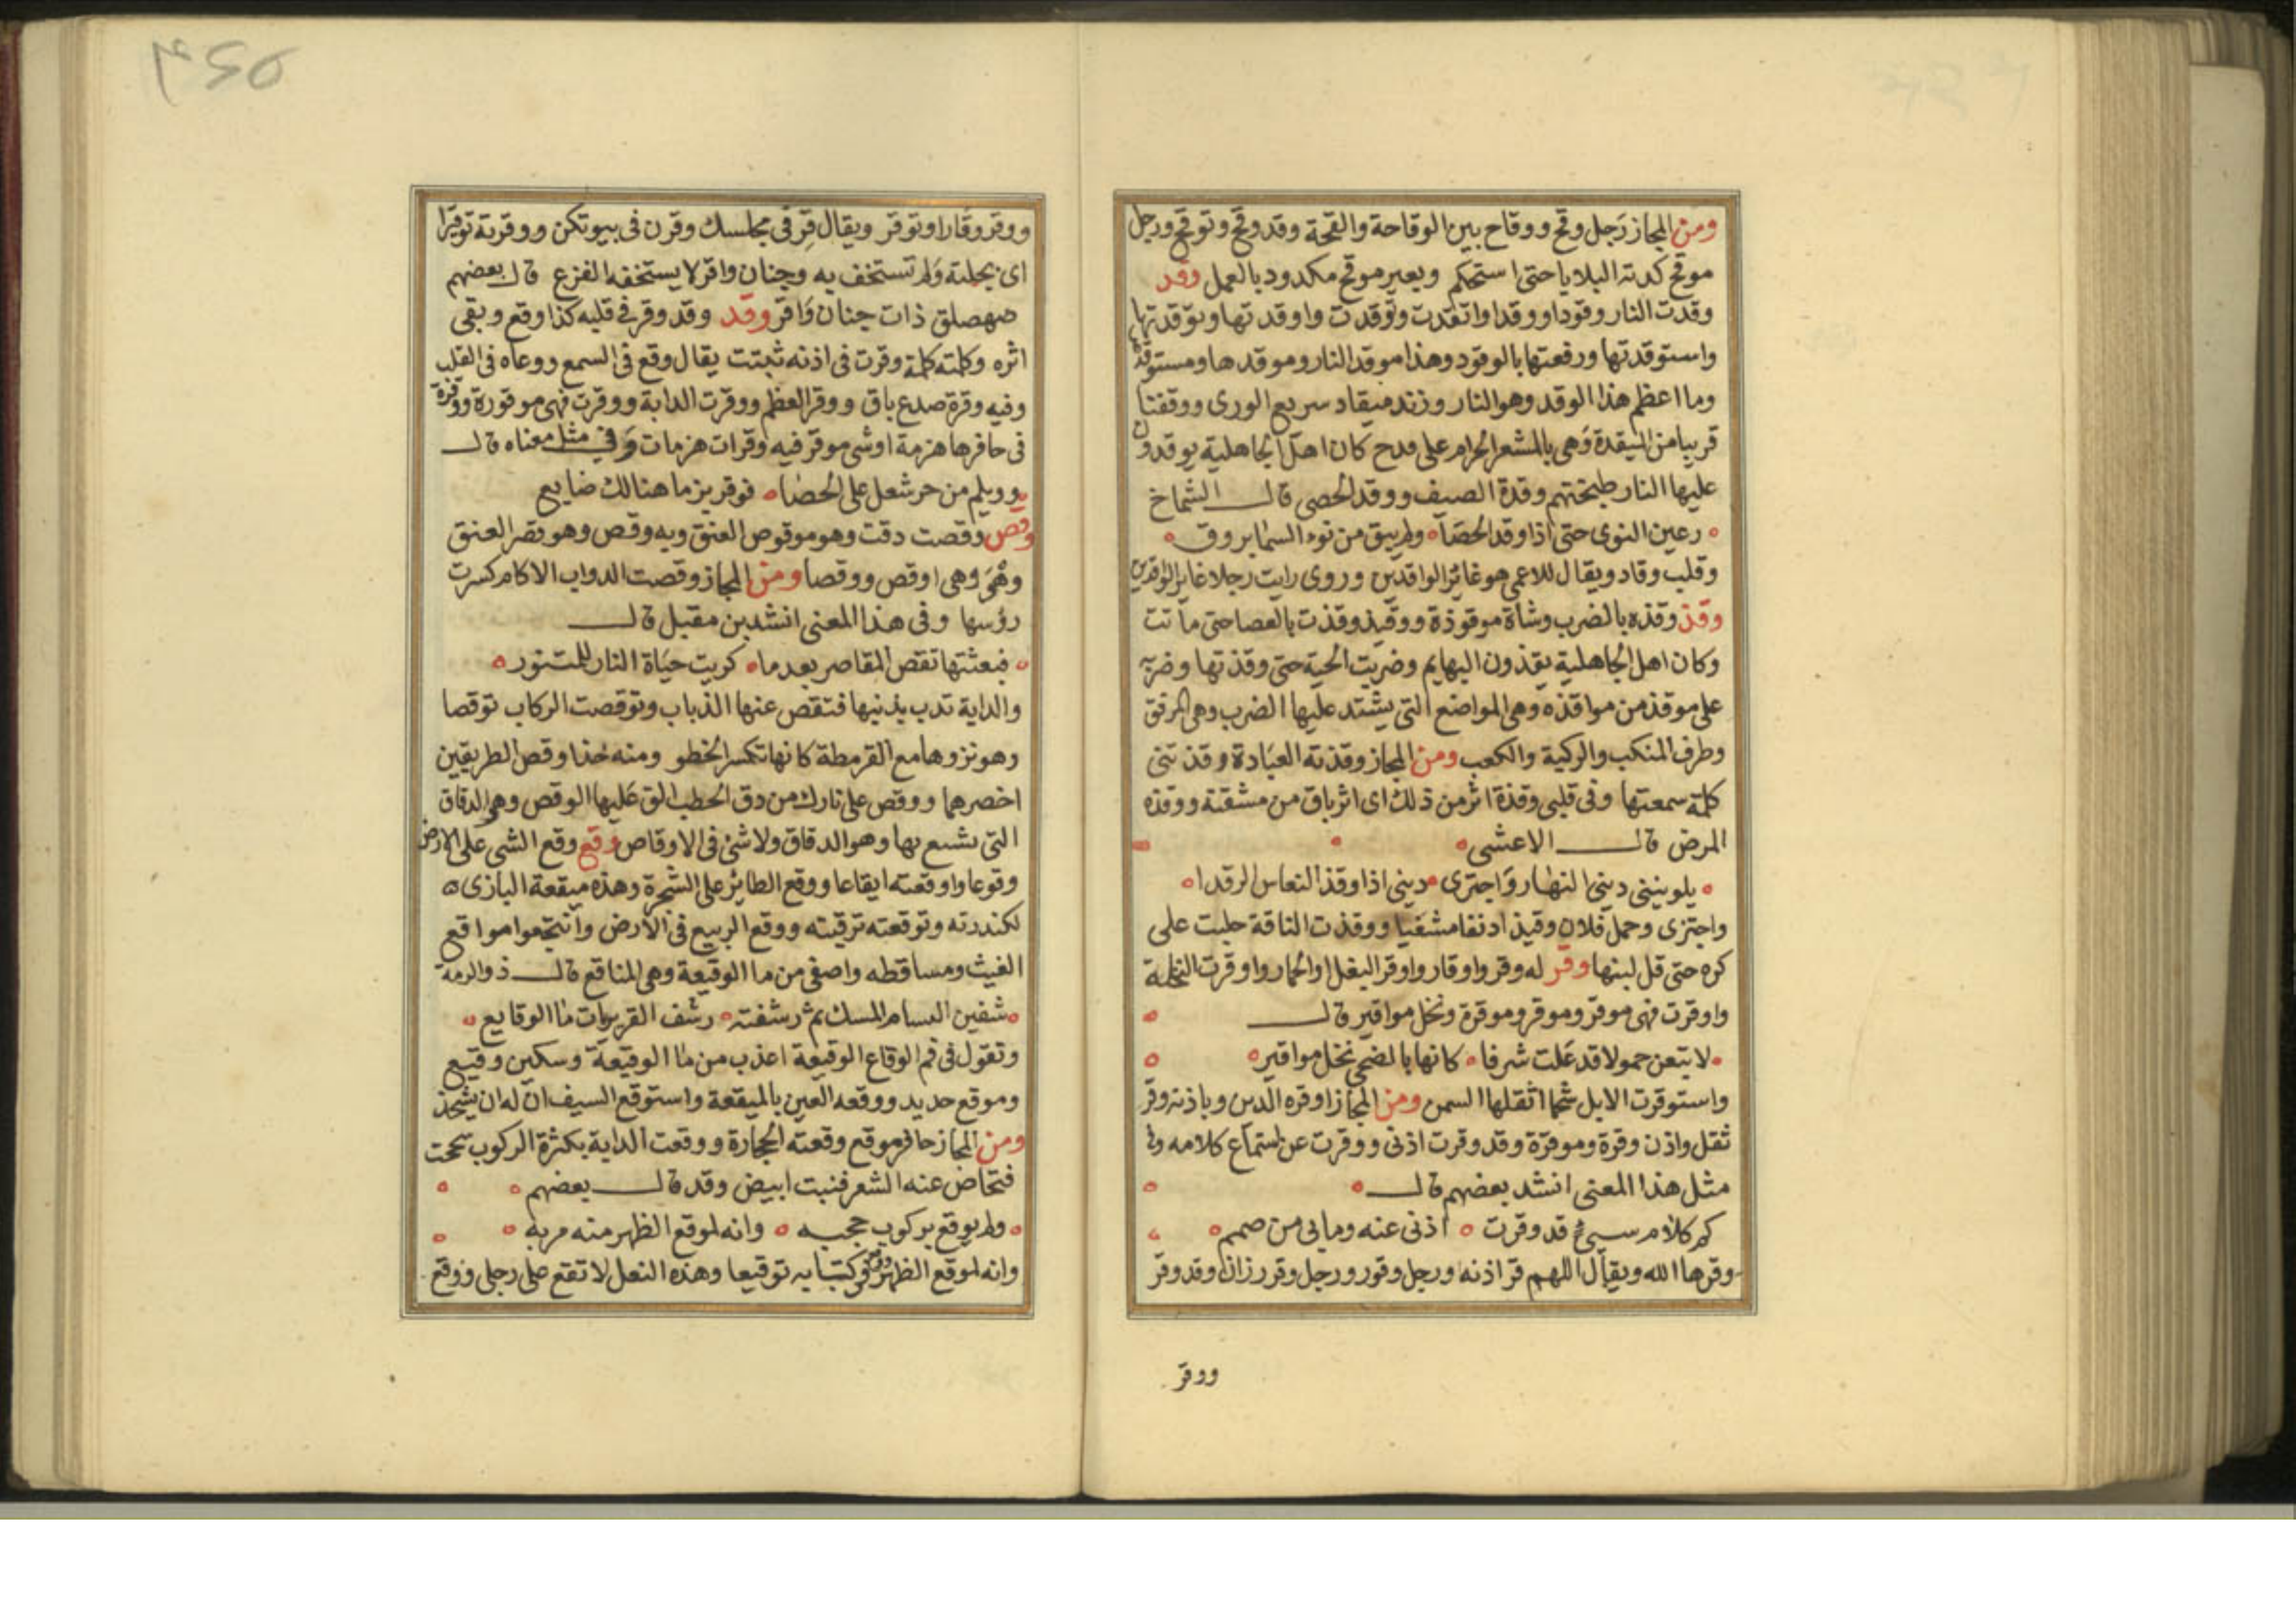 ومن المجاز رجل وقح ووقاح بين الوقاحة والقحة وقد وقح وتوقح ورجل
موقح كدته البلايا حتى استحكم وبعير موقح مكدود بالعمل وقد
وقدت النار وقودا ووقدا واتقدت وتوقدت واوقدتها وتوقدتها
واستوقدتها ورفعتها بالوقود وهذا موقد النار وموقدها ومستوقدها
وما اعظم هذا الوقد وهو النار وزند ميقاد سريع الورى ووقفنا
قريبا من الميقدة وهى بالمشعر الحرام على قدح كان اهل الجاهلية يوقدون
عليها النار طبختهم وقدة الصيف ووقد الحصى قال الشماخ
رعين النوى حتى اذا وقد الحصا ولم يبق من نوء السما بروق
وقلب وقاد ويقال للاعمى هو غائر الواقدين وروى رايت رجلا غاير الواقدين
وقذ وقذه بالضرب وشاة موقوذة ووقيذ وقذت بالعصا حتى ماتت
وكان اهل الجاهلية يقذون البهايم وضربت الحية حتى وقذتها وضربه
على موقذ من مواقذه وهى المواضع التى يشتد عليها الضرب وهى المرفق
وطرف المنكب والركبة والكعب ومن المجاز وقذته العبادة وقذتنى
كلمة سمعتها وفى قلبى وقذة اثر من ذلك اى اثر باق من مشقة ووقذه
المرض قال الاعشى
يلوينني دينى النهار واجترى دينى اذا وقذ النعاس الرقدا
واجتزى وحمل فلان وقيذا دنفا مشفيا ووقذت الناقة حلبت على
كره حتى قل لبنها وقر له وقر واوقار واوقر البغل والحمار واوقرت النخلة
واوقرت فهى موقر وموقر وموقرة ونخل مواقير قال
لا تبعن حمولا قد علت شرفا كانها بالضحى نخل مواقير
واستوقرت الابل شحما اثقلها السمن ومن المجاز اوقره الدين وباذنه وقر
ثقل واذن وقرة وموقرة وقد وقرت اذنى ووقرت عن استماع كلامه وفى
مثل هذا المعنى انشد بعضهم قال
كم كلام سيئ قد وقرت اذنى عنه وما بى من صمم
وقرها الله ويقال اللهم قر اذنه ورجل وقور ورجل وقر رزان وقد وقر
ووقر
ووقر وقارا وتوقر ويقال قر فى مجلسك وقرن فى بيوتكن ووقرته توقيرا
اى بجلته ولم تستخف به وجنان واقر لا يستخفه الفزع قال بعضهم
صهصلق ذات جنان واقر وقد وقد وقر فى قلبه كذا وقع وبقى
اثره وكلمته كلمة وقرت فى اذنه ثبتت يقال وقع فى السمع ووعاه فى القلب
وفيه وقرة صدع باق ووقر العظم ووقرت الدابة ووقرت فهى موقورة ووقرة
فى حافرها هزمة او شى موقر فيه وقرات هزمات وفى مثل معناه قال
وويلم من حر شعل على الحصا فوقر بز ما هنالك ضايع
وقص وقصت دقت وهو موقوص العنق وبه وقص وهو قصر العنق
وهو وهى اوقص ووقصا ومن المجاز وقصت الدواب الاكام كسرت
رؤسها وفى هذا المعنى انشد بن مقبل قال
فبعثتها تقص المقاصر بعدما كربت حياة النار للمتنور
والدابة تذب بذنبها فتقص عنها الذباب وتوقصت الركاب توقصا
وهو نزوها مع القرمطة كانها تكسر الخطو ومنه خذا وقص الطريقين
اخصرهما ووقص على نارك من دق الحطب الق عليها الوقص وهو الدقاق
التى تشيع بها وهو الدقاق ولا شئ فى الاوقاص وقع وقع الشى على الارض
وقوعا واوقعته ايقاعا ووقع الطائر على الشجرة وهذه ميقعة البازى
لكندرته وتوقعته ترقبته ووقع الربيع فى الارض وانتجعوا مواقع
الغيث ومساقطه واصفى من ما الوقيعة وهى المناقع قال ذو الرمة
شفين البسام المسك ثم رشفنه رشف الغريريات ما الوقايع
وتقول فى فم الوقاع الوقيعة اعذب من ما الوقيعة وسكين وقيع
وموقع حديد ووقعه القين بالميقعة واستوقع السيف ان له ان يشحذ
ومن المجاز حافر موقع وقعته الحجارة ووقعت الدابة بكثرة الركوب سحجت
فتحاص عنه الشعر فنبت ابيض وقد قال بعضهم
ولم يوقع بركوب حجبه وانه لموقع الظهر منه مربه
وانه لموقع الظهر ووقع فى كتابه توقيعا وهذه النعل لا تقع على رجلى ووقع